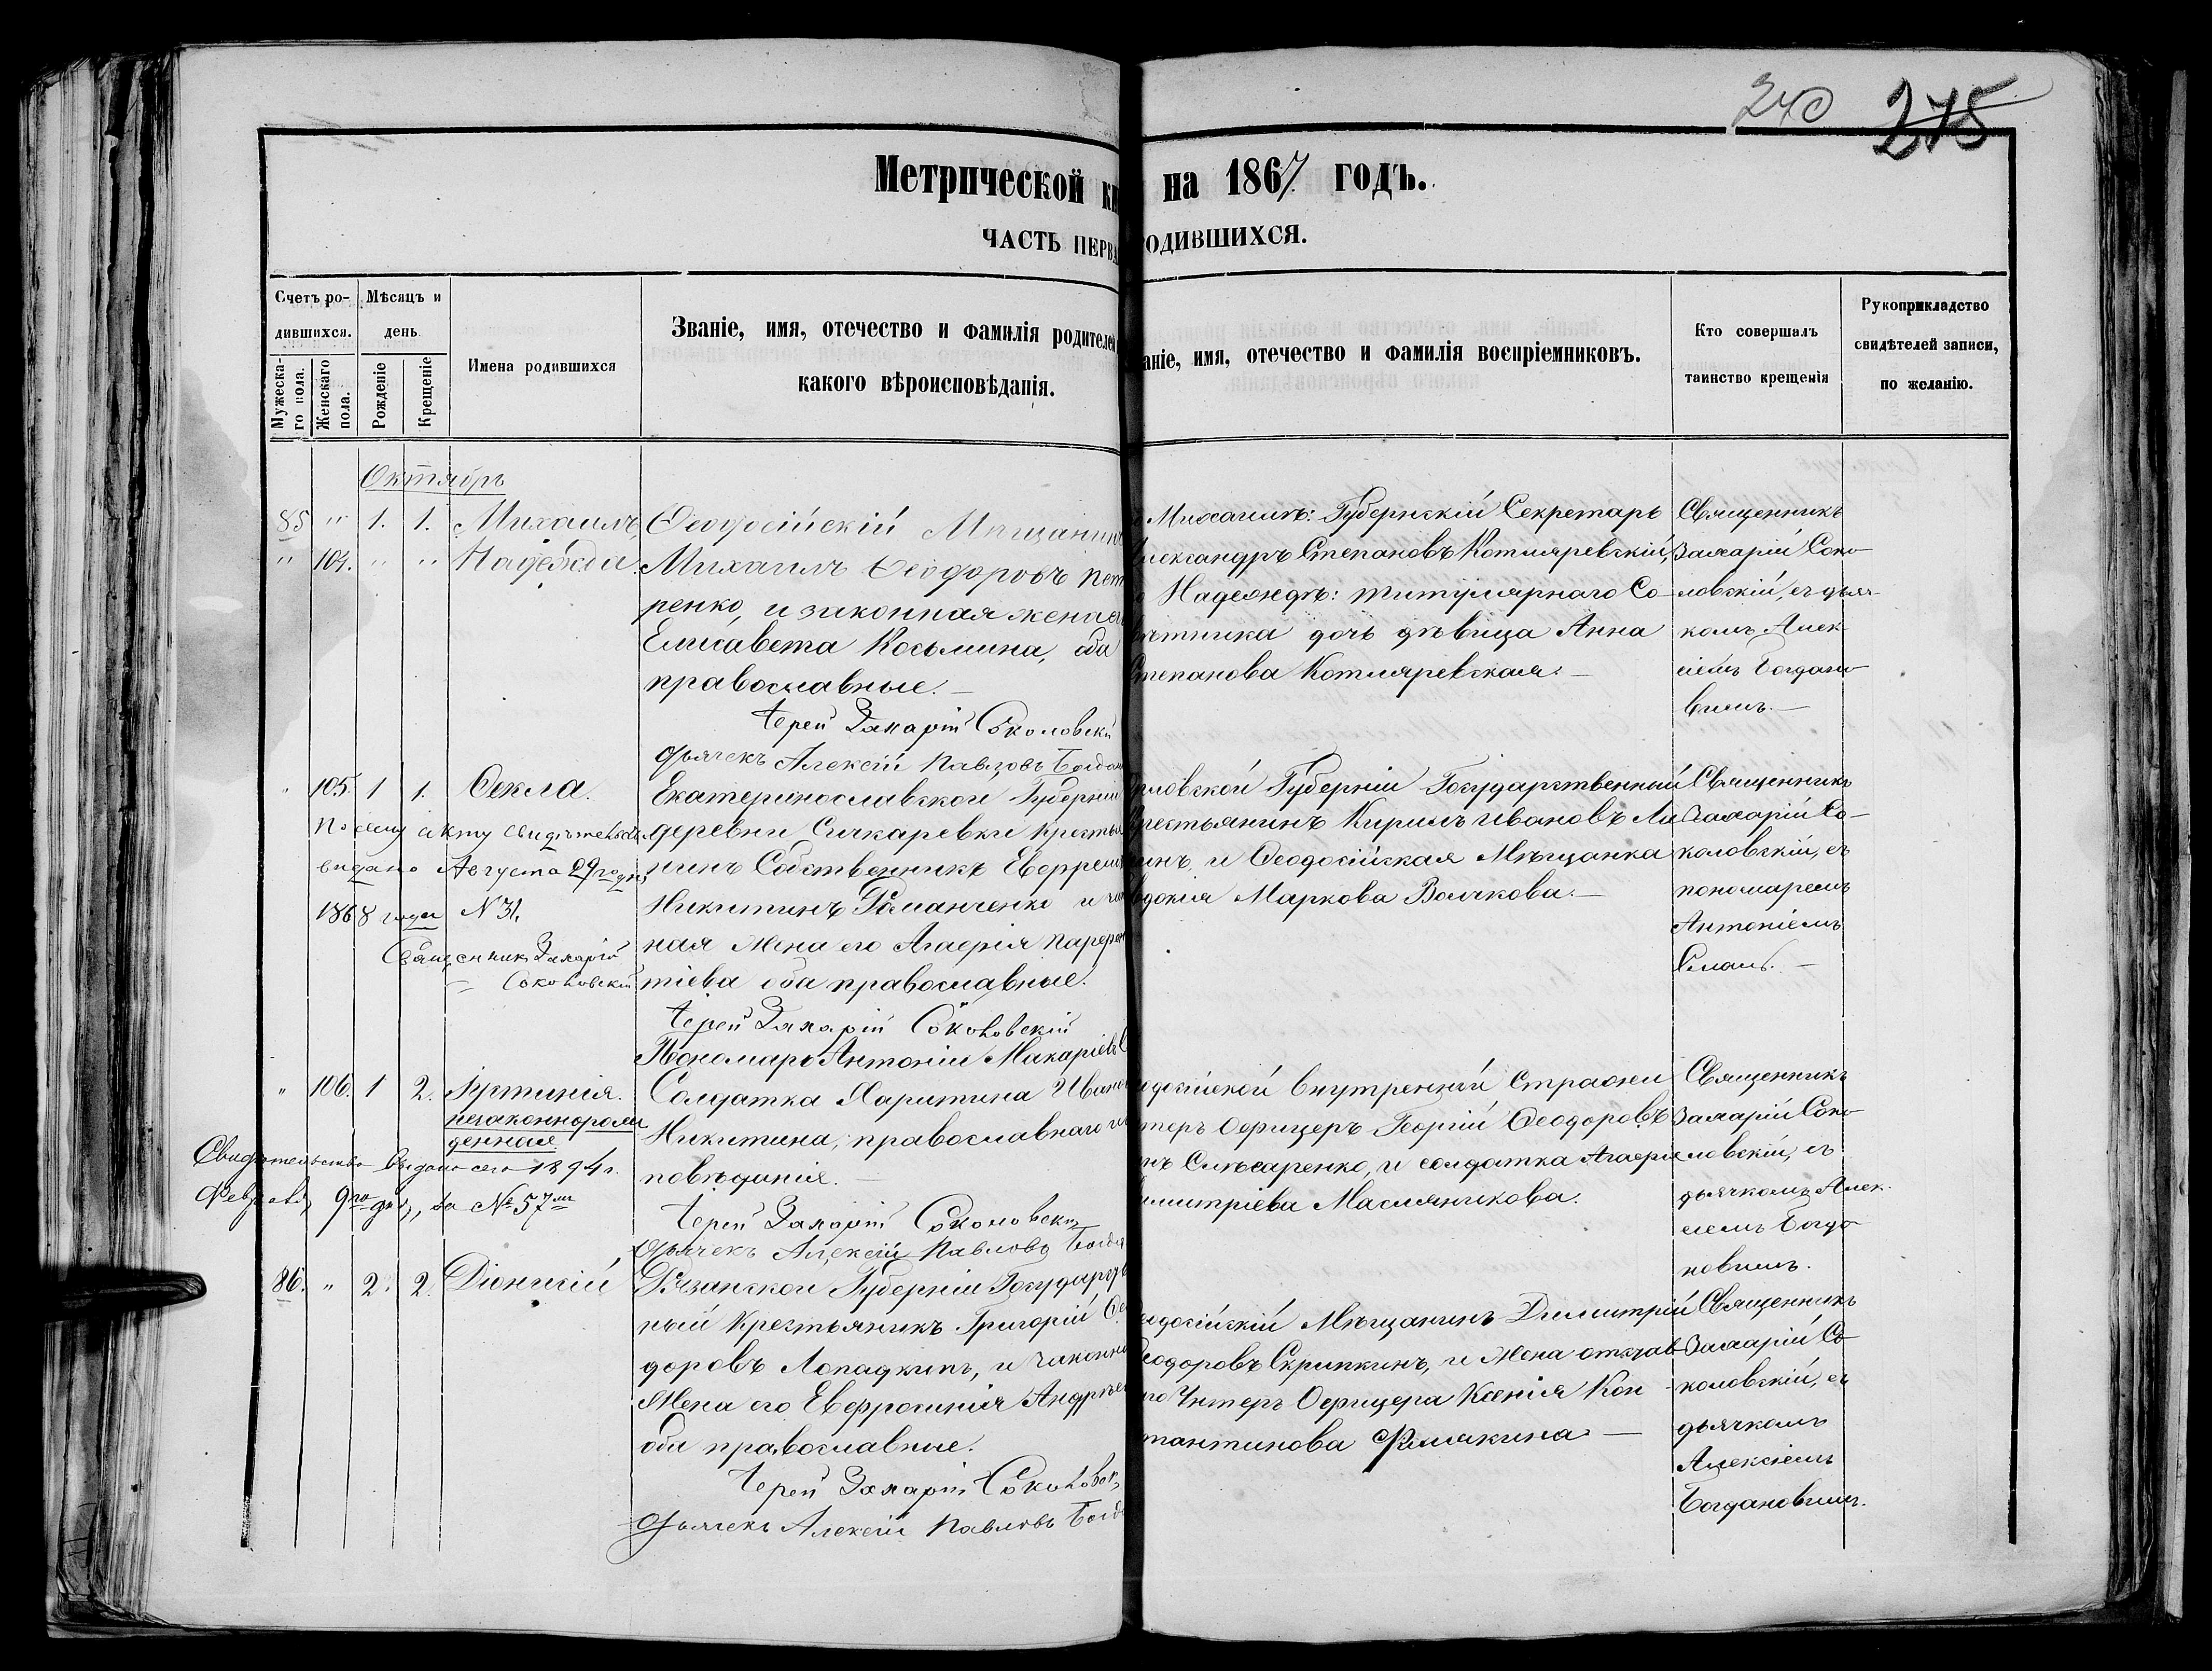 240 275
Метрической кн на 1867 годъ.
ЧАСТЬ ПЕРВА ОДИВШИХСЯ.
Счетъ ро-
дившихся.
Мужеска-
го пола.
Женскаго
пола.
Мѣсяцъ и
день
Рожденіе
Крещеніе
Имена родившихся
Званіе, имя, отечество и фамилія родителей
какого вѣроисповѣданія.
аніе, имя, отечество и фамилія воспріемниковъ.
Кто совершалъ
таинство крещенія
Рукоприкладство
свидѣтелей записи,
по желанію.
Октябрь
85 " 1. 1. Михаилъ,
" 104. " " Надежда.
Ѳеодосійскій Мѣщанинъ
Михаилъ Ѳеодоровъ Пет
ренко, и законная жена е
Елисавета Косьмина, оба
православные. —
Іерей Захарій Соколовскі
Дьячекъ Алексій Павловъ Богдан
Михаилъ: Губернскій Секретарь
лександръ Степановъ Котляревскій,
Надеждѣ: титулярнаго Со-
вѣтника дочь дѣвица Анна
Степанова Котляревская. —
Священникъ
Захарій Соко-
ловскій, съ дьяч-
комъ Алек-
сіемъ Богдано-
вымъ. —
" 105. 1 1. Ѳекла.
По сему акту свидѣтельств
видано Августа 29го дня
1868 года N 31.
Священникъ Захарій
Соколовскій
Екатеринославской Губерніи
деревни Сичкаревки Крестья
нинъ Собственникъ Евфрем
Никитинъ Романченко и зако
ная жена его Агафія Парфен
тіева оба православные.
Іерей Захарій Соколовскій
Пономарь Антоній Макаріевъ С
рловской Губерніи Государственный
рестьянинъ Кирилъ Ивановъ Ли
инъ, и Ѳеодосійская Мѣщанка
вдокія Маркова Волчкова. —
Священникъ
Захарій Со-
коловскій, съ
пономаремъ
Антоніемъ
" 106. 1 2. Іустинія.
незаконнорож
денная
Свидѣтельство выдано сего 1894 г.
Февраля 9го дня, за № 57мъ
Солдатка Харитина Ивано
Никитина, православнаго ис
повѣданія. —
Іерей Захарій Соколовскій
Дьячекъ Алексій Павловъ Богда
одосійской Внутренной Стражи
нтеръ Офицеръ Георгій Ѳеодоровъ
нъ Слѣсаренко, и солдатка Агафія
имитріева Масляникова.
Священникъ
Захарій Соко-
ловскій, съ
дьячкомъ Алек-
сіемъ Богда-
новымъ.
86. " 2. 2. Діонисій
Рязанской Губерніи Государств
ный Крестьянинъ Григорій Ѳео
доровъ Лопадкинъ, и законна
Жена его Евфросинія Андрѣев
оба православные.
Іерей Захарій Соколовск
Дьячекъ Алексій Павловъ Богда
одосійскій Мѣщанинъ Димитрій
еодоровъ Скрипкинъ, и Жена отстав-
го Унтеръ Офицера Ксенія Кон-
стантинова —
Священникъ
Захарій Со-
коловскій, съ
дьячкомъ
Алексіемъ
Богдановымъ.